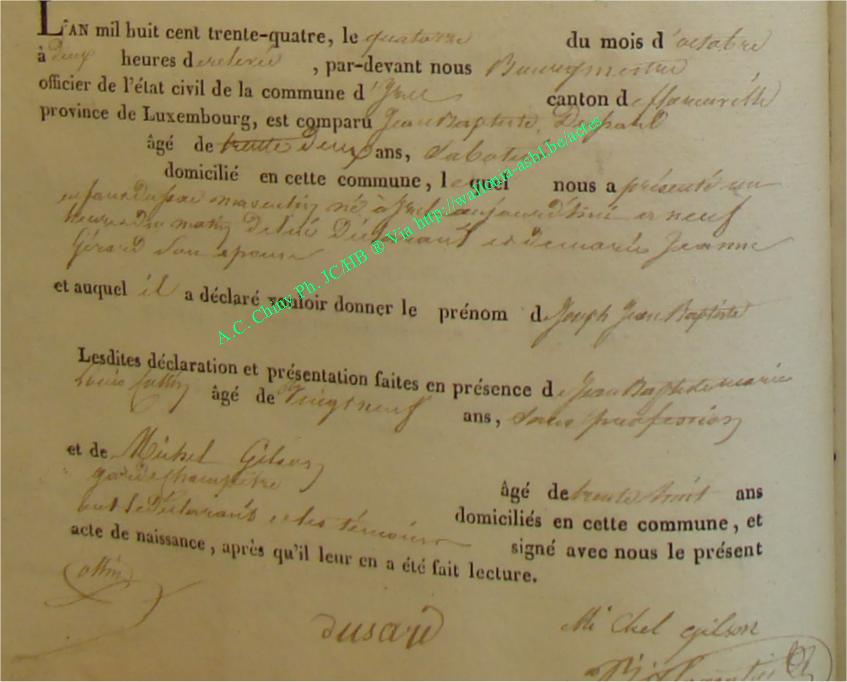 L'AN mil huit cent trente-quatre, le quatorze du mois d'octobre
à deux heures de relevée, par-devant nous Bourgmestre
officier de l'état civil de la commune d'Izel canton de
province de Luxembourg, est comparu Jean Baptiste
âgé de trente Deux ans, Sabotier
domicilié en cette commune, lequel nous a présenté un
enfant du sexe masculin né à Izel aujourd'hui à neuf
heures du matin de lui Déclarant et de marie Jeanne
Gérard son épouse
et auquel il a déclaré vouloir donner le prénom de Joseph Jean Baptiste
Lesdites déclaration et présentation faites en présence de Jean Baptiste marie
Louis Cottin âgé de Vingt neuf ans, Sans profession
et de Michel Gilson
garde champêtre âgé de trente huit ans
ont le Déclarant et les témoins domiciliés en cette commune, et
signé avec nous le présent
acte de naissance, après qu'il leur en a été fait lecture.
Cottin
dusard
Michel gilson
A.C. Chiny Ph. JC/HB ® Via http://wallonia-asbl.be/actes